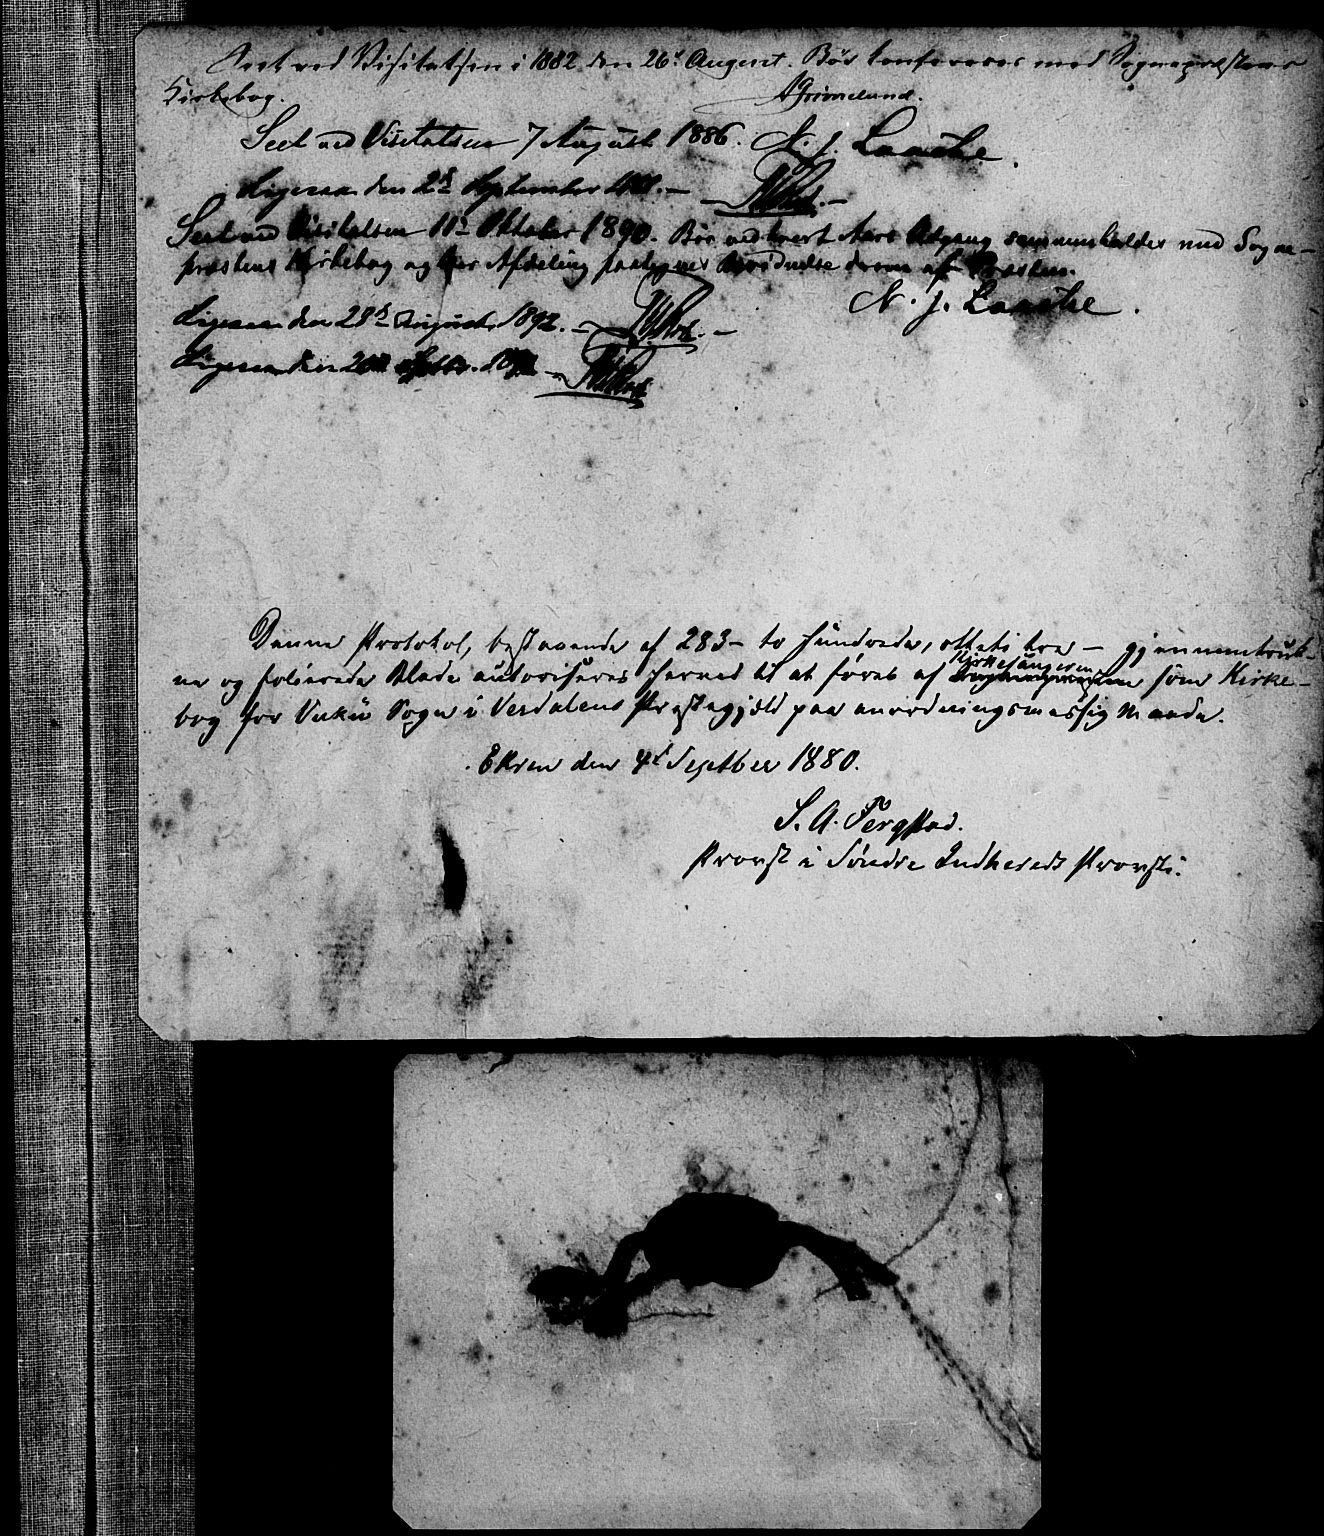 Seet ved Visitatsen i 1882 den 26d August. Bör konfereres med Sognepræstens
Kirkebog. AGrimelund.
Seet ved Visitatsen 7 August 1886. N. J. Laache.
Ligesaa den 2d September
Seet ved Visitatsen 11te Oktober 1890. Bör ved hvert Aars Udgang sammenholdes med Sogne-
præstens Kirkebog og hver Afdeling paategnes derom af Præsten.
N. J. Laache.
Ligesaa den 28d August 1892.
Ligesaa den
Denne Protokol, bestaaende af 283 – to hundrede, otteti tre – gjennemtruk-
ne og folierede Blade autoriseres herved til at føres af Kirkesangeren som Kirke-
bog for Vuku Sogn i Verdalens Præstegjeld paa anordningsmæssig Maade.
Ekren den 4d Septber 1880.
S. A.
Provst i Søndre Indhereds Provsti.